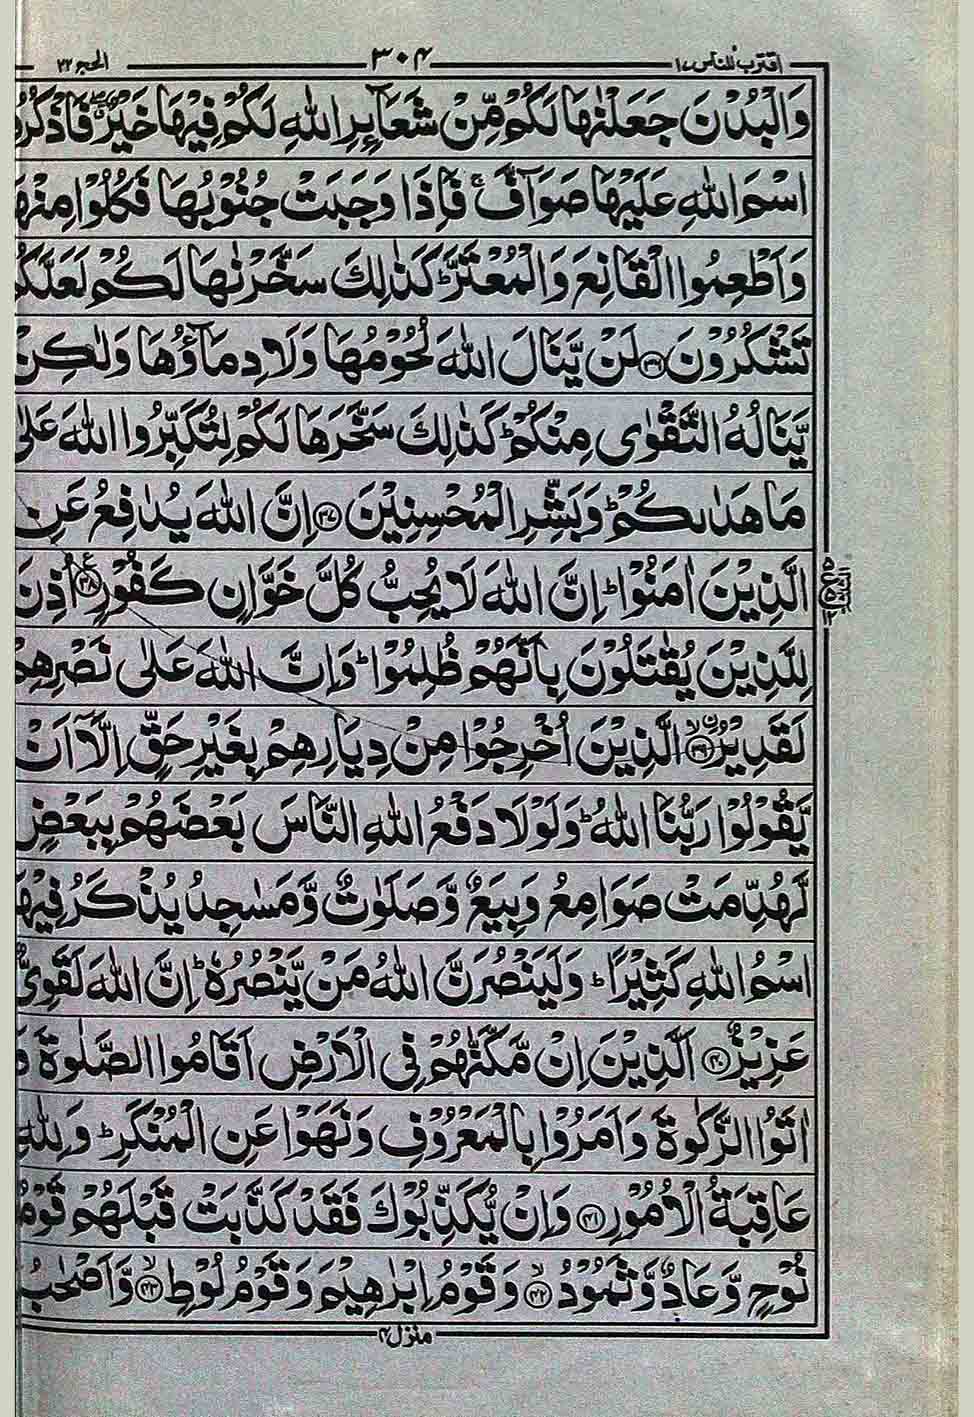 اقترب للناس ١٧ ٣٠٤ الحج ٢٢
وَالْبُدْنَ جَعَلْنٰهَا لَكُمْ مِّنْ شَعَآئِرِ اللّٰهِ لَكُمْ فِيْهَا خَيْرٌ فَاذْكُرُوا
اسْمَ اللّٰهِ عَلَيْهَا صَوَآفَّ ۚ فَاِذَا وَجَبَتْ جُنُوْبُهَا فَكُلُوْا مِنْهَا
وَاَطْعِمُوا الْقَانِعَ وَالْمُعْتَرَّ ؕ كَذٰلِكَ سَخَّرْنٰهَا لَكُمْ لَعَلَّكُمْ
تَشْكُرُوْنَ ۝٣٦ لَنْ يَّنَالَ اللّٰهَ لُحُوْمُهَا وَلَا دِمَآؤُهَا وَلٰكِنْ
يَّنَالُهُ التَّقْوٰى مِنْكُمْ ؕ كَذٰلِكَ سَخَّرَهَا لَكُمْ لِتُكَبِّرُوا اللّٰهَ عَلٰى
مَا هَدٰىكُمْ ؕ وَبَشِّرِ الْمُحْسِنِيْنَ ۝٣٧ اِنَّ اللّٰهَ يُدٰفِعُ عَنِ
الَّذِيْنَ اٰمَنُوْا ؕ اِنَّ اللّٰهَ لَا يُحِبُّ كُلَّ خَوَّانٍ كَفُوْرٍ ۝٣٨ اُذِنَ
لِلَّذِيْنَ يُقٰتَلُوْنَ بِاَنَّهُمْ ظُلِمُوْا ؕ وَاِنَّ اللّٰهَ عَلٰى نَصْرِهِمْ
لَقَدِيْرُ ۝٣٩ۙ الَّذِيْنَ اُخْرِجُوْا مِنْ دِيَارِهِمْ بِغَيْرِ حَقٍّ اِلَّآ اَنْ
يَّقُوْلُوْا رَبُّنَا اللّٰهُ ؕ وَلَوْلَا دَفْعُ اللّٰهِ النَّاسَ بَعْضَهُمْ بِبَعْضٍ
لَّهُدِّمَتْ صَوَامِعُ وَبِيَعٌ وَّصَلَوٰتٌ وَّمَسٰجِدُ يُذْكَرُ فِيْهَا
اسْمُ اللّٰهِ كَثِيْرًا ؕ وَلَيَنْصُرَنَّ اللّٰهُ مَنْ يَّنْصُرُهٗ ؕ اِنَّ اللّٰهَ لَقَوِىٌّ
عَزِيْزٌ ۝٤٠ اَلَّذِيْنَ اِنْ مَّكَّنّٰهُمْ فِى الْاَرْضِ اَقَامُوا الصَّلٰوةَ وَ
اٰتَوُا الزَّكٰوةَ وَاَمَرُوْا بِالْمَعْرُوْفِ وَنَهَوْا عَنِ الْمُنْكَرِ ؕ وَلِلّٰهِ
عَاقِبَةُ الْاُمُوْرِ ۝٤١ وَاِنْ يُّكَذِّبُوْكَ فَقَدْ كَذَّبَتْ قَبْلَهُمْ قَوْمُ
نُوْحٍ وَّعَادٌ وَّثَمُوْدُ ۝٤٢ۙ وَقَوْمُ اِبْرٰهِيْمَ وَقَوْمُ لُوْطٍ ۝٤٣ۙ وَّاَصْحٰبُ
منزل ٤